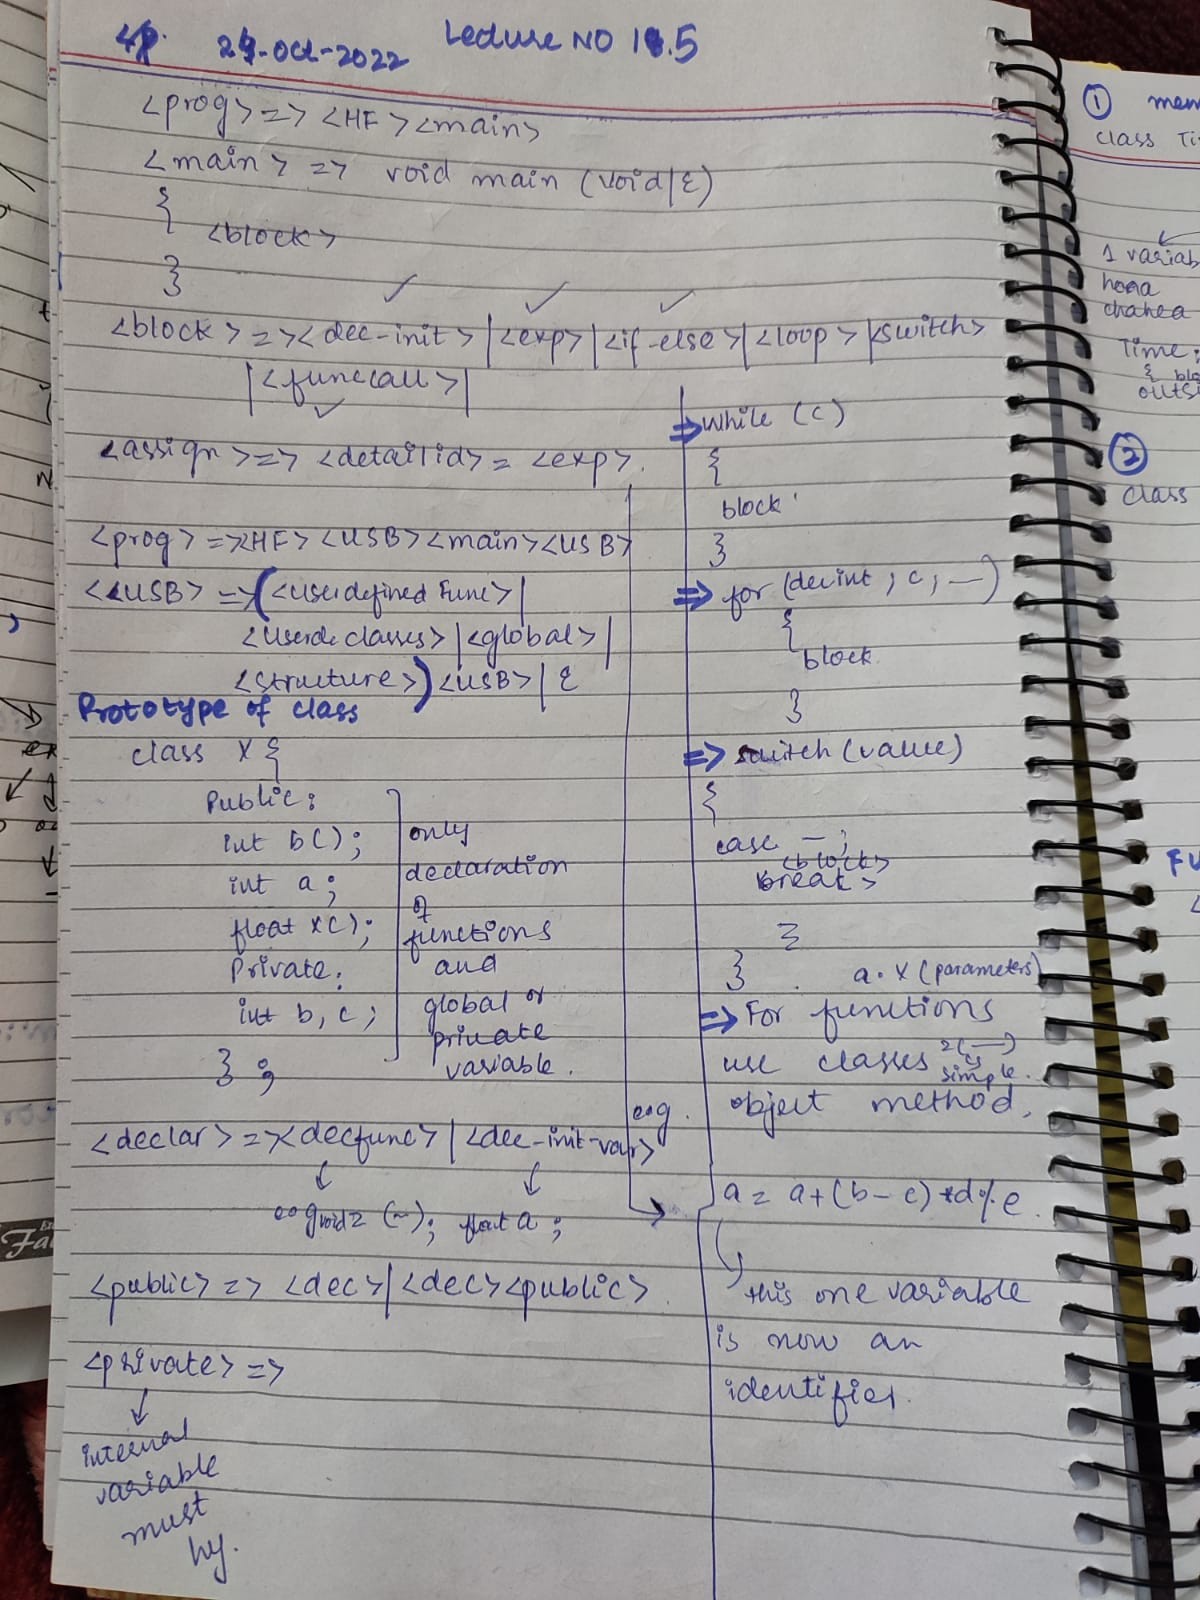 24-Oct-2022 Lecture NO 15
<prog> => <HF><main>
<main> => void main (void|ε)
{
<block>
}
<block> => <dec-init> | <exp> | <if-else> | <loop> | <switch>
| <funccall> |
<assign> => <detailid> = <exp>.
<prog> => <HF> <USB> <main> <USB>
<<USB> => (<userdefined func> |
<userde classes> | <global> |
<structure>) <USB> | ε
Prototype of class
class X {
Public:
int b();
int a;
float x();
Private:
int b, c;
};
only
declaration
of
functions
and
global or
private
variable.
<declar> => <decfunc> | <dec-init-var>
void z (~); float a;
<public> => <dec> | <dec> <public>
<private> =>
internal
variable
must
hy.
=> while (c)
{
block
}
=> for (decint; c; —)
{
block.
}
=> switch (value)
{
case —;
<block>
break>
}
}
a.x (parameters)
=> For functions
use classes z(—)
simple.
object method.
e.g.
a = a+(b-c)*d%e.
this one variable
is now an
identifier.
① mem
class Ti
1 variab
hona
chahea
Time:
{ blo
outsi
②
class
FU
Fa